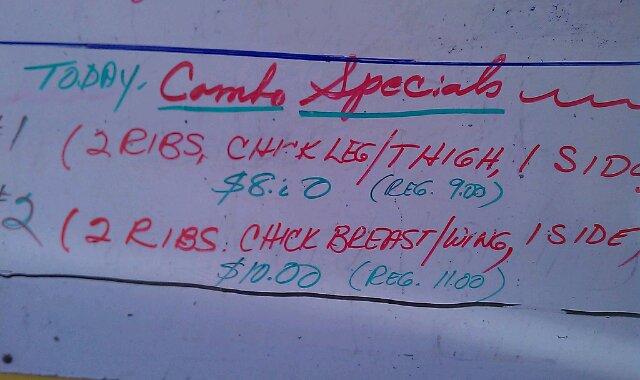 TODAY. Combo Specials
#1 (2 RIBS, CHICK LEG/THIGH, 1 SIDE
(REG. 9.00)
#2 (2 RIBS. CHICK BREAST/WING, 1 SIDE,
$10.00 (REG. 11.00)